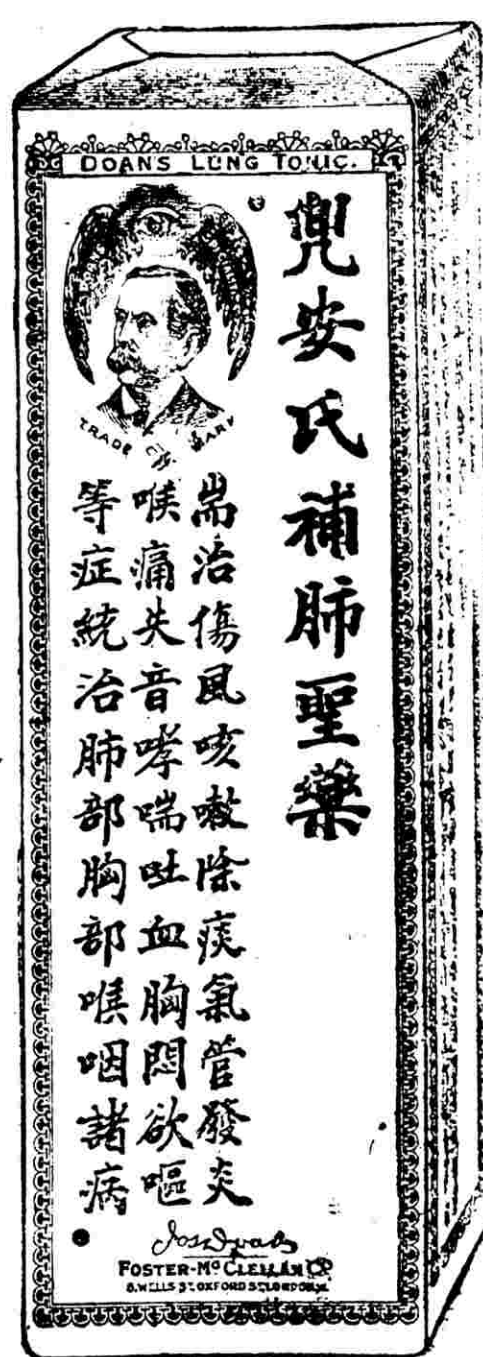 DOAN'S LUNG TONIC.
兜安氏補肺聖藥
TRADE MARK
耑治傷風咳嗽除痰氣管發炎
喉痛失音哮喘吐血胸悶欲嘔
等症統治肺部胸部喉咽諸病
FOSTER-McCLELLAN Co
8. WELLS ST OXFORD ST LONDON.